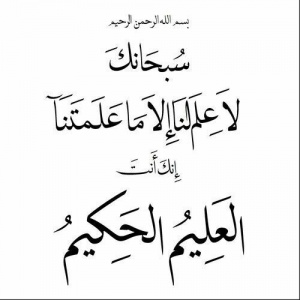 بسم الله الرحمن الرحيم
سُبحَانكَ
لاَ عِلمَ لنَا إِلا مَا عَلمتَنَآ
إِنكَ أَنتَ
العَلِيمُ الحَكِيمُ